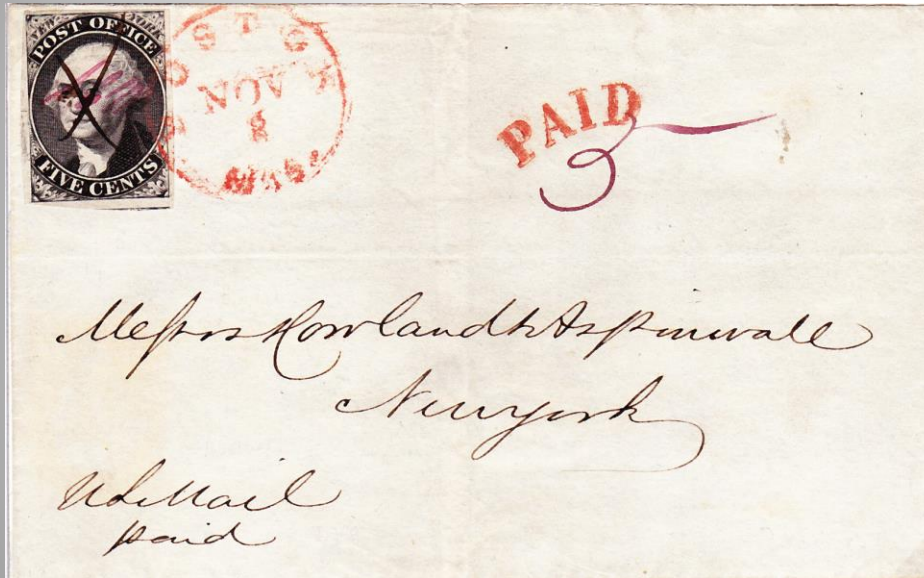 NEW YORK
POST OFFICE
FIVE CENTS
BOSTON
NOV
8
MASS
PAID
5
Messrs Howland & Aspinwall
New York
U S Mail
paid